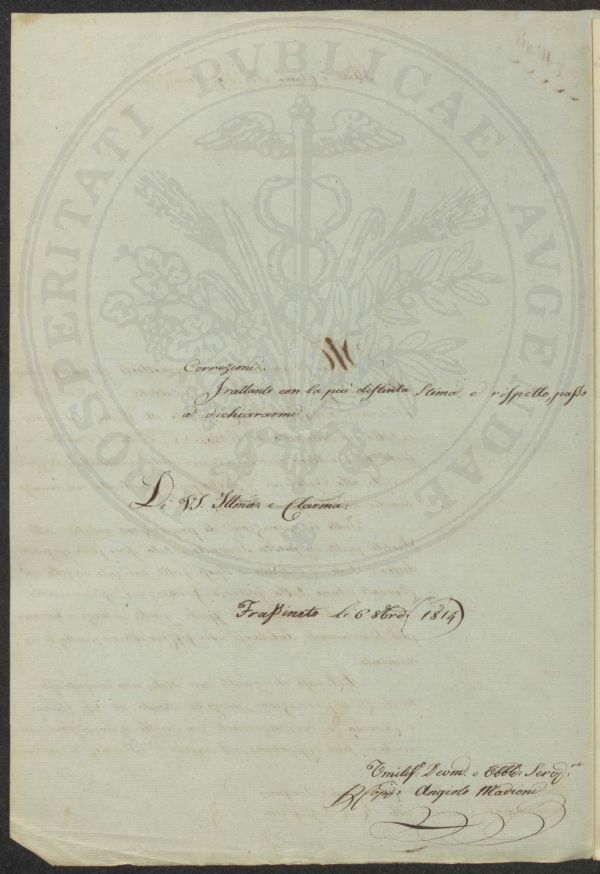 PROSPERITATI PVBLICAE AVGENDAE
Correzioni.
Frattanto con la più distinta stima e rispetto, passo
a dichiararmi
Di VS. Illma: e Clarma:
Frassineto li 6 8bre (1814)
Umiliss. Devm. e Obbl: Servo:re
Angiolo Marioni